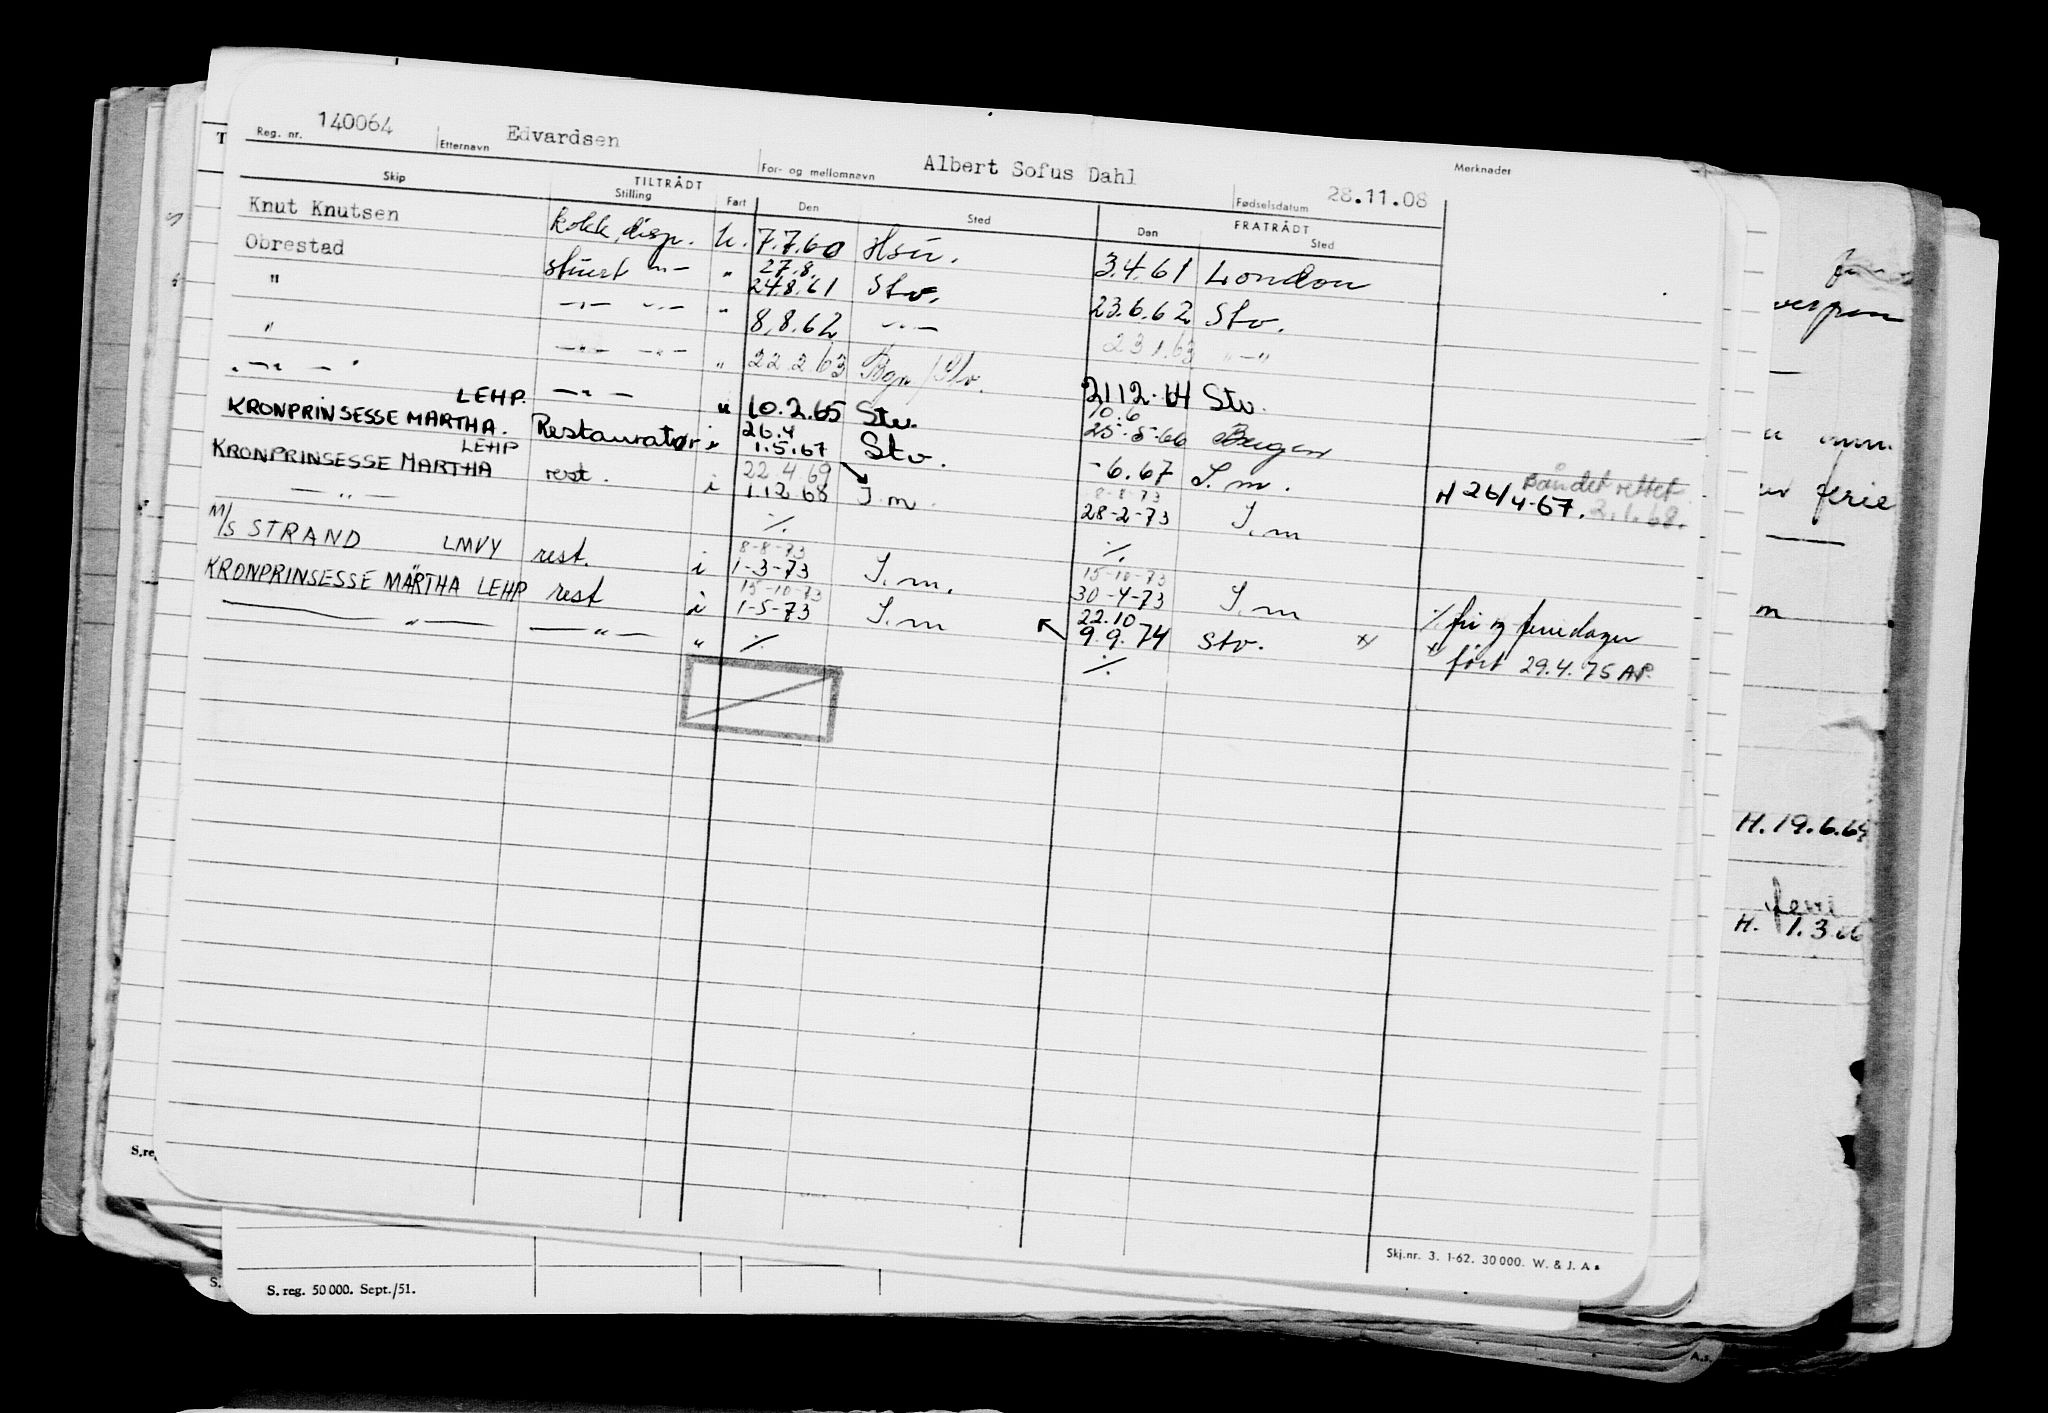 Reg. nr. 140064 Etternavn Edvardsen For- og mellomnavn Albert Sofus Dahl Fødselsdatum 28.11.08 Merknader
TILTRÅDT FRATRÅDT
Skip Stilling Fart Den Sted Den Sted
Knut Knutsen kokk, disp. u. 7.7.60 Hsu. 3.4.61 London
Obrestad stuert -"- " 27.8. 24.8.61 Stv. 23.6.62 Stv.
" -"- -"- " 8.8.62 -"- 23 1.63 "-"
" -"- -"- " 22.2 63 Bgn/Stv. 2112.64 Stv.
-"- LEHP. -"- " 10.2.65 Stv. 10.6 25-5-66 Bergen
KRONPRINSESSE MÄRTHA. Restauratør i 26.4 1.5.67 Stv. -6.67 I. m. H 26/4-67. Båndet rettet 2.1.68.
KRONPRINSESSE MARTHA LEHP rest. i 22.4 69 1.12 68 I m. 8-8-73 28-2-73 I. m
-"- ./. ./.
M/S STRAND LMVY rest. i 8-8-73 1-3-73 I. m. 15-10-73 30-4-73 I. m
KRONPRINSESSE MÄRTHA LEHP rest i 15-10-73 1-5-73 I. m 22.10 9.9.74 Stv. x) ./. fri og feriedager
-"- -"- " ./. ./. x) ført 29.4.75 AP.
H. 19.6.64
H. 1.3.66
ferie
m
Skj.nr. 3. 1-62. 30 000. W. & J. A s
S. reg. 50 000. Sept./51.
S.re
S.
A.s.